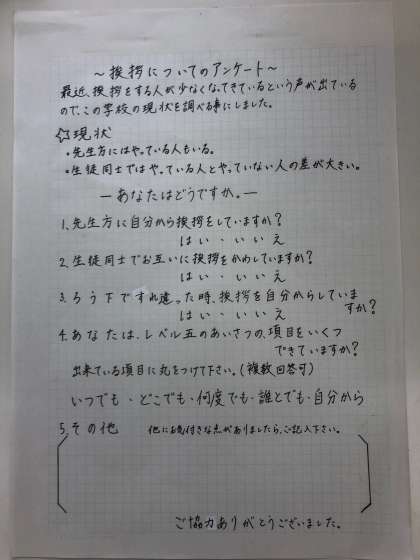 ～挨拶についてのアンケート～
最近、挨拶をする人が少なくなってきているという声が出ている
ので、この学校の現状を調べる事にしました。
☆現状
・先生方にはやっている人もいる。
・生徒同士ではやっている人とやっていない人の差が大きい。
―あなたはどうですか。―
1、先生方に自分から挨拶をしていますか？
はい・いいえ
2、生徒同士でお互いに挨拶をかわしていますか？
はい・いいえ
3、ろう下ですれ違った時、挨拶を自分からしていま
すか？
はい・いいえ
4、あなたは、レベル五のあいさつの、項目をいくつ
できていますか？
出来ている項目に丸をつけて下さい。（複数回答可）
いつでも・どこでも・何度でも・誰とでも・自分から
5、その他 他にお気付きな点がありましたら、ご記入下さい。
ご協力ありがとうございました。